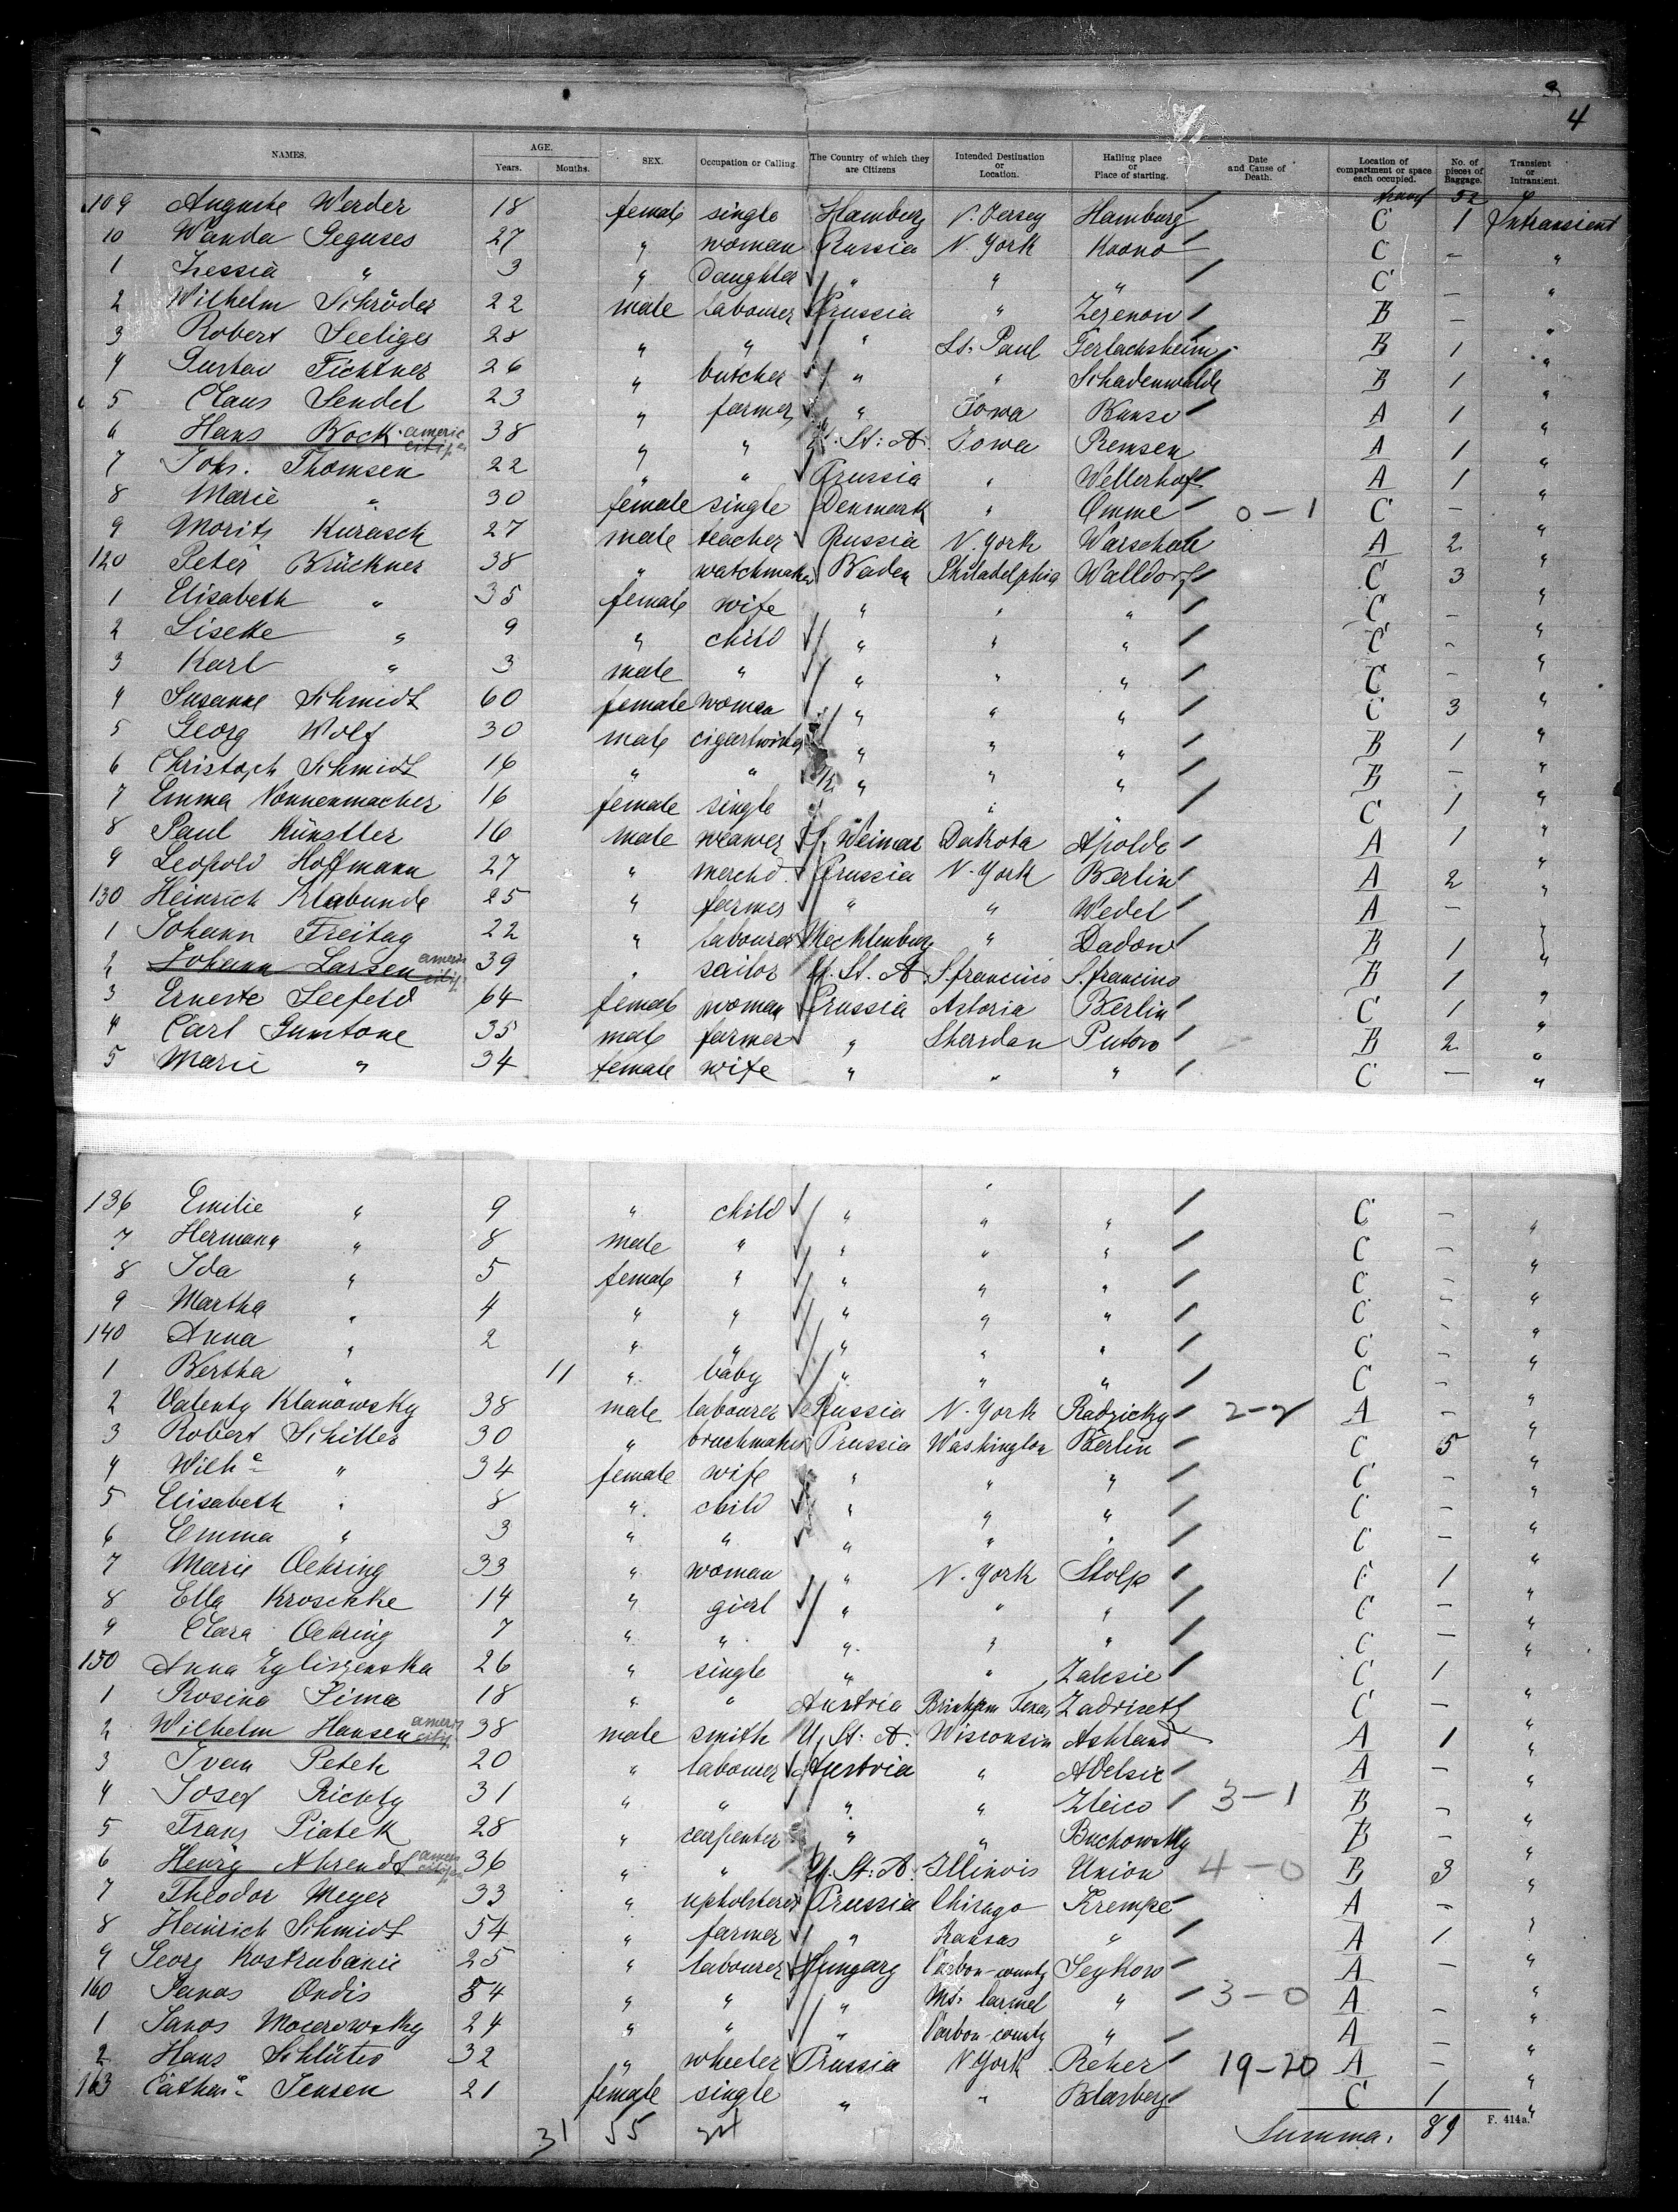 4
NAMES. AGE. Years. Months. SEX. Occupation or Calling. The Country of which they are Citizens Intended Destination or Location. Hailing place or Place of starting. Date and Cause of Death. Location of compartment or space each occupied. No. of pieces of Baggage. Transient or Intransient.
52
109 Auguste Werder 18 female single Hamburg N. Jersey Hamburg C 1 Intransient
10 Wanda Geguses 27 " woman Russia N. York Kowno C - "
1 " 3 " Daughter " " " C - "
2 Wilhelm Schröder 22 male labourer Prussia " B - "
3 Robert Seeliger 28 " " " St. Paul Gerlachsheim B 1 "
4 Gustav Fichtner 26 " butcher " " Schadenwalde B 1 "
5 Claus Sendel 23 " farmer " Iowa A 1 "
6 Hans Bock americ citiz 38 " " U. St: A. Iowa Remsen A 1 "
7 Johs. Thomsen 22 " " Prussia " Wellerhof A 1 "
8 Marie " 30 female single Denmark " Omme 0-1 C - "
9 Moritz Kurasch 27 male teacher Russia N. York Warschau A 2 "
120 Peter Brückner 38 " watchmaker Baden Philadelphia Walldorf C 3 "
1 Elisabeth " 35 female wife " " " C - "
2 Lisette " 9 " child " " " C - "
3 Karl " 3 male " " " " C - "
4 Susanne Schmidt 60 female woman " " " C 3 "
5 Georg Wolf 30 male " " " B 1 "
6 Christoph Schmidt 16 " " " " " B - "
7 Emma Nonnenmacher 16 female single " " " C 1 "
8 Paul Künstler 16 male weawer S. Weimar Dakota Apolda A 1 "
9 Leopold Hoffmann 27 " merchd. Prussia N. York Berlin A 2 "
130 Heinrich Klabunde 25 " farmer " " Wedel A - "
1 Johann Freitag 22 " labourer Mecklenburg " Dadow B 1 "
2 Johann Larsen americ citiz 39 " sailor U. St. A S. francisco S. francisco B 1 "
3 Erneste Seefeld 64 female woman Prussia Astoria Berlin C 1 "
4 Carl Gumtone 35 male farmer " Sheridan Putow B 2 "
5 Marie " 34 female wife " " " C - "
136 Emilie " 9 " child " " " C - "
7 Hermann " 8 male " " " " C - "
8 Ida " 5 female " " " " C - "
9 Martha " 4 " " " " " C - "
140 Anna " 2 " " " " " C - "
1 Bertha " 11 " baby " " " C - "
2 Valenty Klanowsky 38 male labourer Russia N. York Radzicky 2-2 A - "
3 Robert Schiller 30 " bruchmaker Prussia Washington Berlin C 5 "
4 Wilhe " 34 female wife " " " C - "
5 Elisabeth " 8 " child " " " C - "
6 Emma " 3 " " " " " C - "
7 Marie Oehring 33 " woman " N. York Stolp C 1 "
8 Ella Kroschke 14 " gierl " " " C - "
9 Clara Oehring 7 " " " " " C - "
150 Anna Zyliszenska 26 " single " " Zalesie C 1 "
1 Rosina Sima 18 " " Austria C - "
2 Wilhelm Hansen americ citiz 38 male smith U. St: A. Wisconsin Ashland A 1 "
3 Ivan Petek 20 " labourer Austria " Adelsic A - "
4 Josef Richty 31 " " " " Zleico 3-1 B - "
5 Franz Piatek 28 " carpenter " " Buchowsky B - "
6 Henry Ahrendt americ citiz 36 " " U. St: A. Illinois Union 4-0 B 3 "
7 Theodor Meyer 33 " upholsterer Prussia Chicago Krempe A - "
8 Heinrich Schmidt 54 " farmer " Kansas " A 1 "
9 Georg Kostrubanic 25 " labourer Hungary Carbon-county A - "
160 Janos Ondis 54 " " " Mt. Carmel " 3-0 A - "
1 Janos Mocerowsky 24 " " " Carbon-county " A - "
2 Hans Schlüter 32 " wheeler Prussia N. York Reher 19-20 A - "
163 Cathare Jensen 21 female single " " Blarberg C 1 "
31 55 Summa. 89 F. 414a.